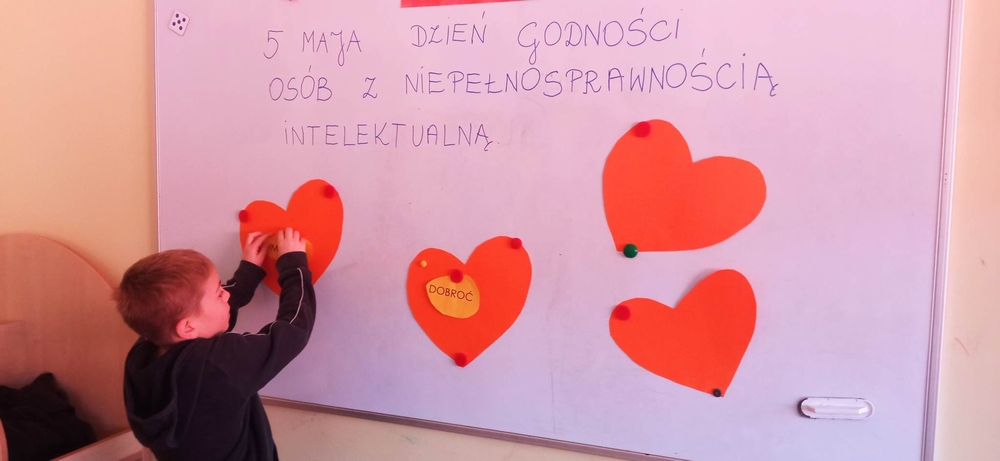 5 MAJA DZIEŃ GODNOŚCI
OSÓB Z NIEPEŁNOSPRAWNOŚCIĄ
INTELEKTUALNĄ.
DOBROĆ